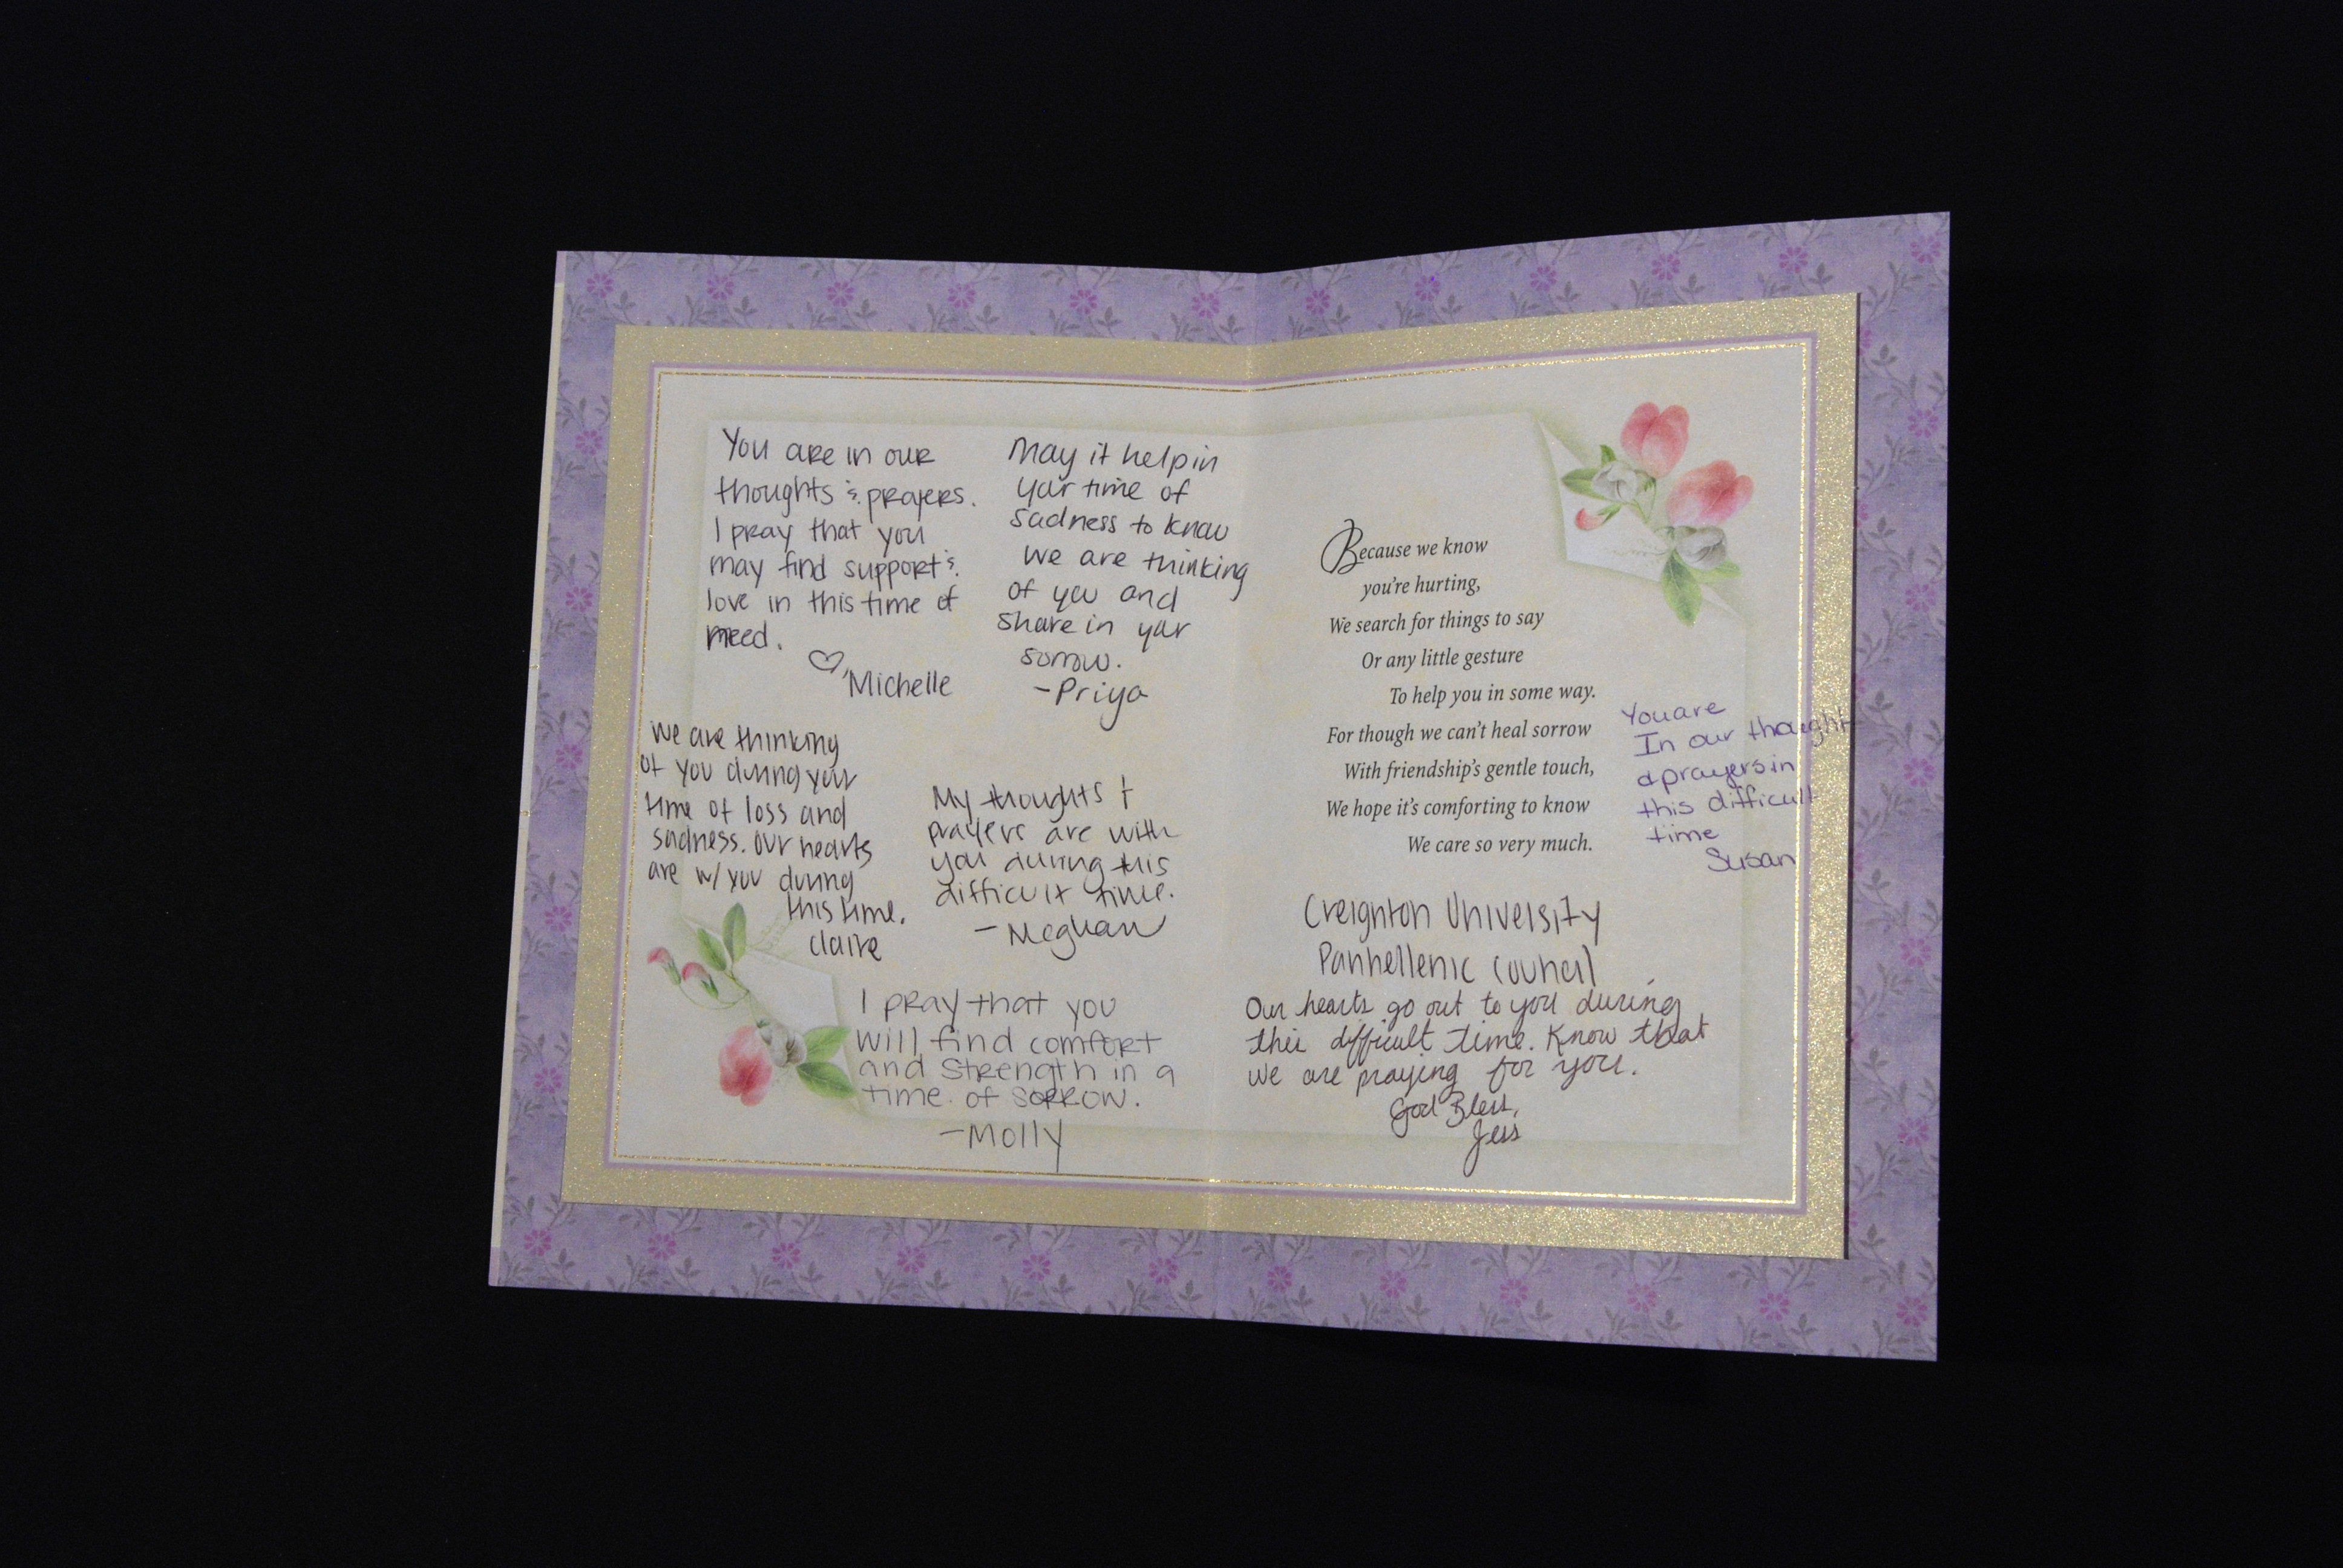 You are in our
thoughts & prayers.
I pray that you
may find support &
love in this time of
need.
♡, Michelle
May it help in
your time of
sadness to know
we are thinking
of you and
share in your
sorrow.
-Priya
We are thinking
of you during your
time of loss and
sadness. Our hearts
are w/ you during
this time.
Claire
My thoughts +
prayers are with
you during this
difficult time.
- Meghan
I pray that you
will find comfort
and strength in a
time of sorrow.
-Molly
Because we know
you're hurting,
We search for things to say
Or any little gesture
To help you in some way.
For though we can't heal sorrow
With friendship's gentle touch,
We hope it's comforting to know
We care so very much.
You are
In our thought
& prayers in
this difficult
time
Susan
Creighton University
Panhellenic Council
Our hearts go out to you during
this difficult time. Know that
we are praying for you.
God Bless,
Jess